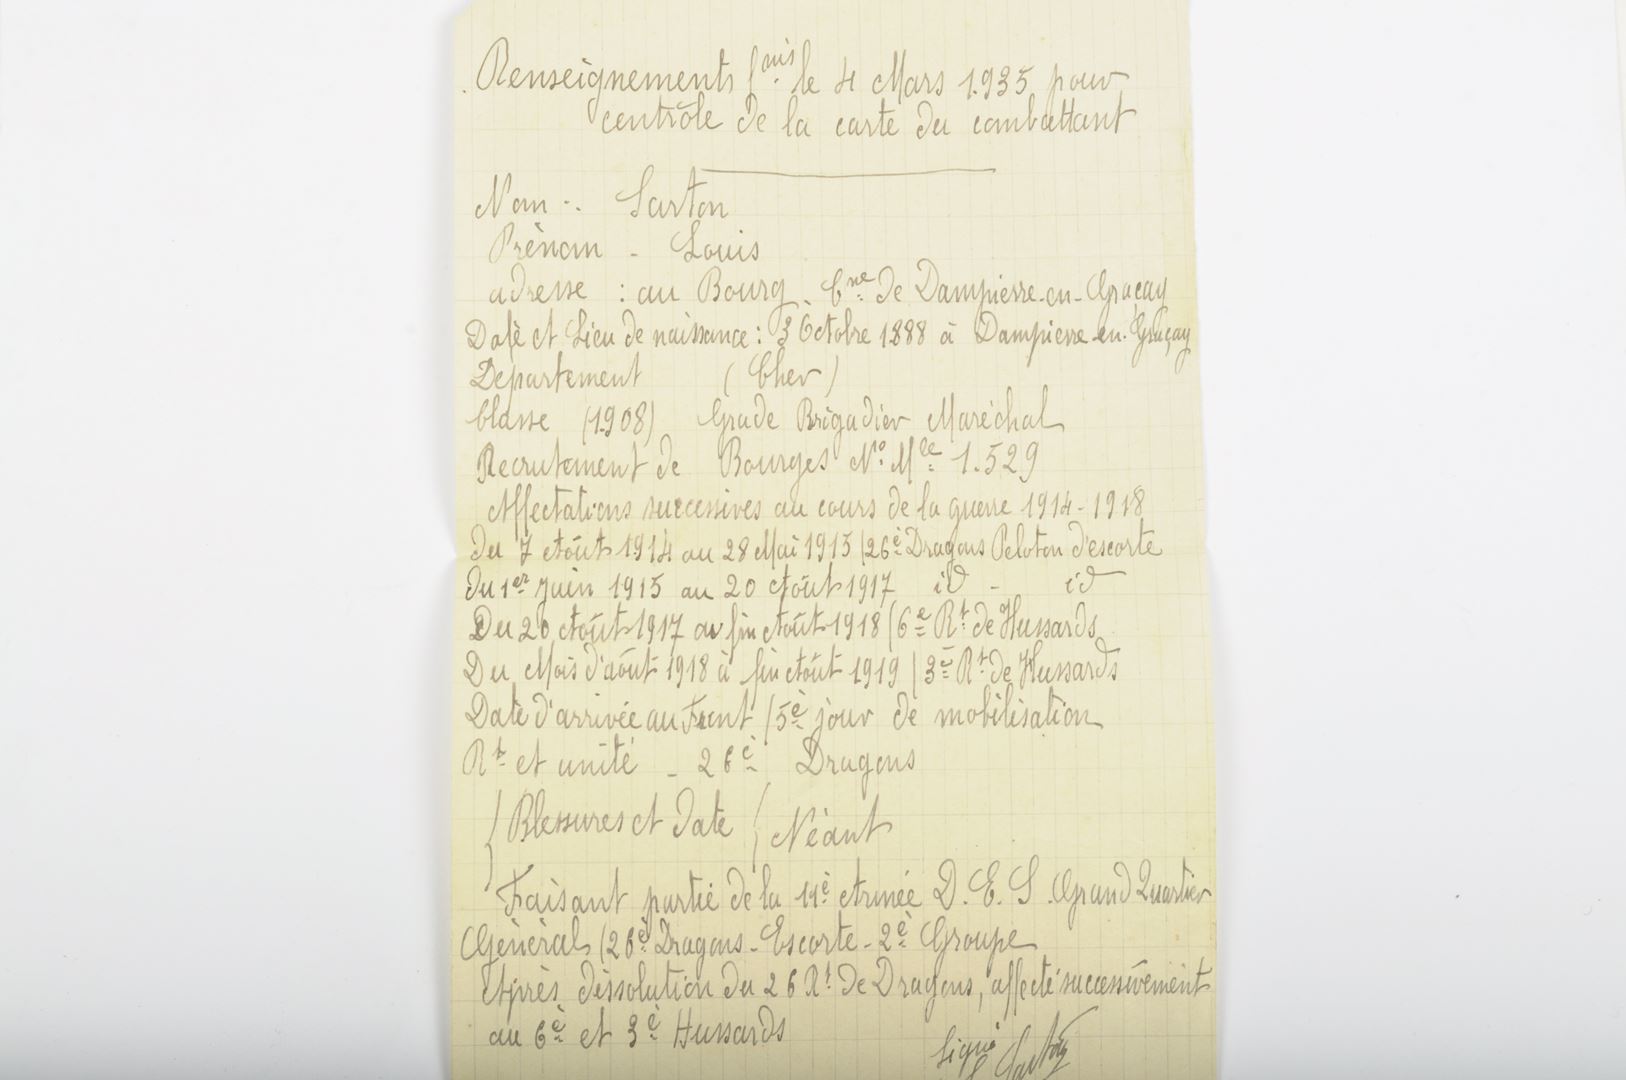 Renseignements fnis le 4 Mars 1.935 pour
contrôle de la carte du combattant
Nom -. Sarton
Prénom - Louis
adresse : au Bourg. Cne de Dampierre-en-Graçay
Date et Lieu de naissance : 3 Octobre 1888 à Dampierre-en-Graçay
Département (Cher)
Classe (1.908) Grade Brigadier Maréchal
Recrutement de Bourges No. Mle 1.529
Affectations successives au cours de la guerre 1914-1918
du 7 Août 1914 au 28 Mai 1915 (26è Dragons Peloton d'escorte
du 1er Juin 1915 au 20 Août 1917 id - id
Du 20 Août 1917 au fin Août 1918 (6e Rt de Hussards
Du Mois d'août 1918 à fin Août 1919 (3è Rt de Hussards
Date d'arrivée au Front (5è jour de mobilisation
Rt et unité - 26è Dragons
{Blessures et date { Néant
Faisant partie de la Armée D.E.S. Grand Quartier
Général (26è Dragons - Escorte - 2è Groupe
Après dissolution du 26 Rt de Dragons, affecté successivement
au 6è et 3è Hussards
Signé
Sarton